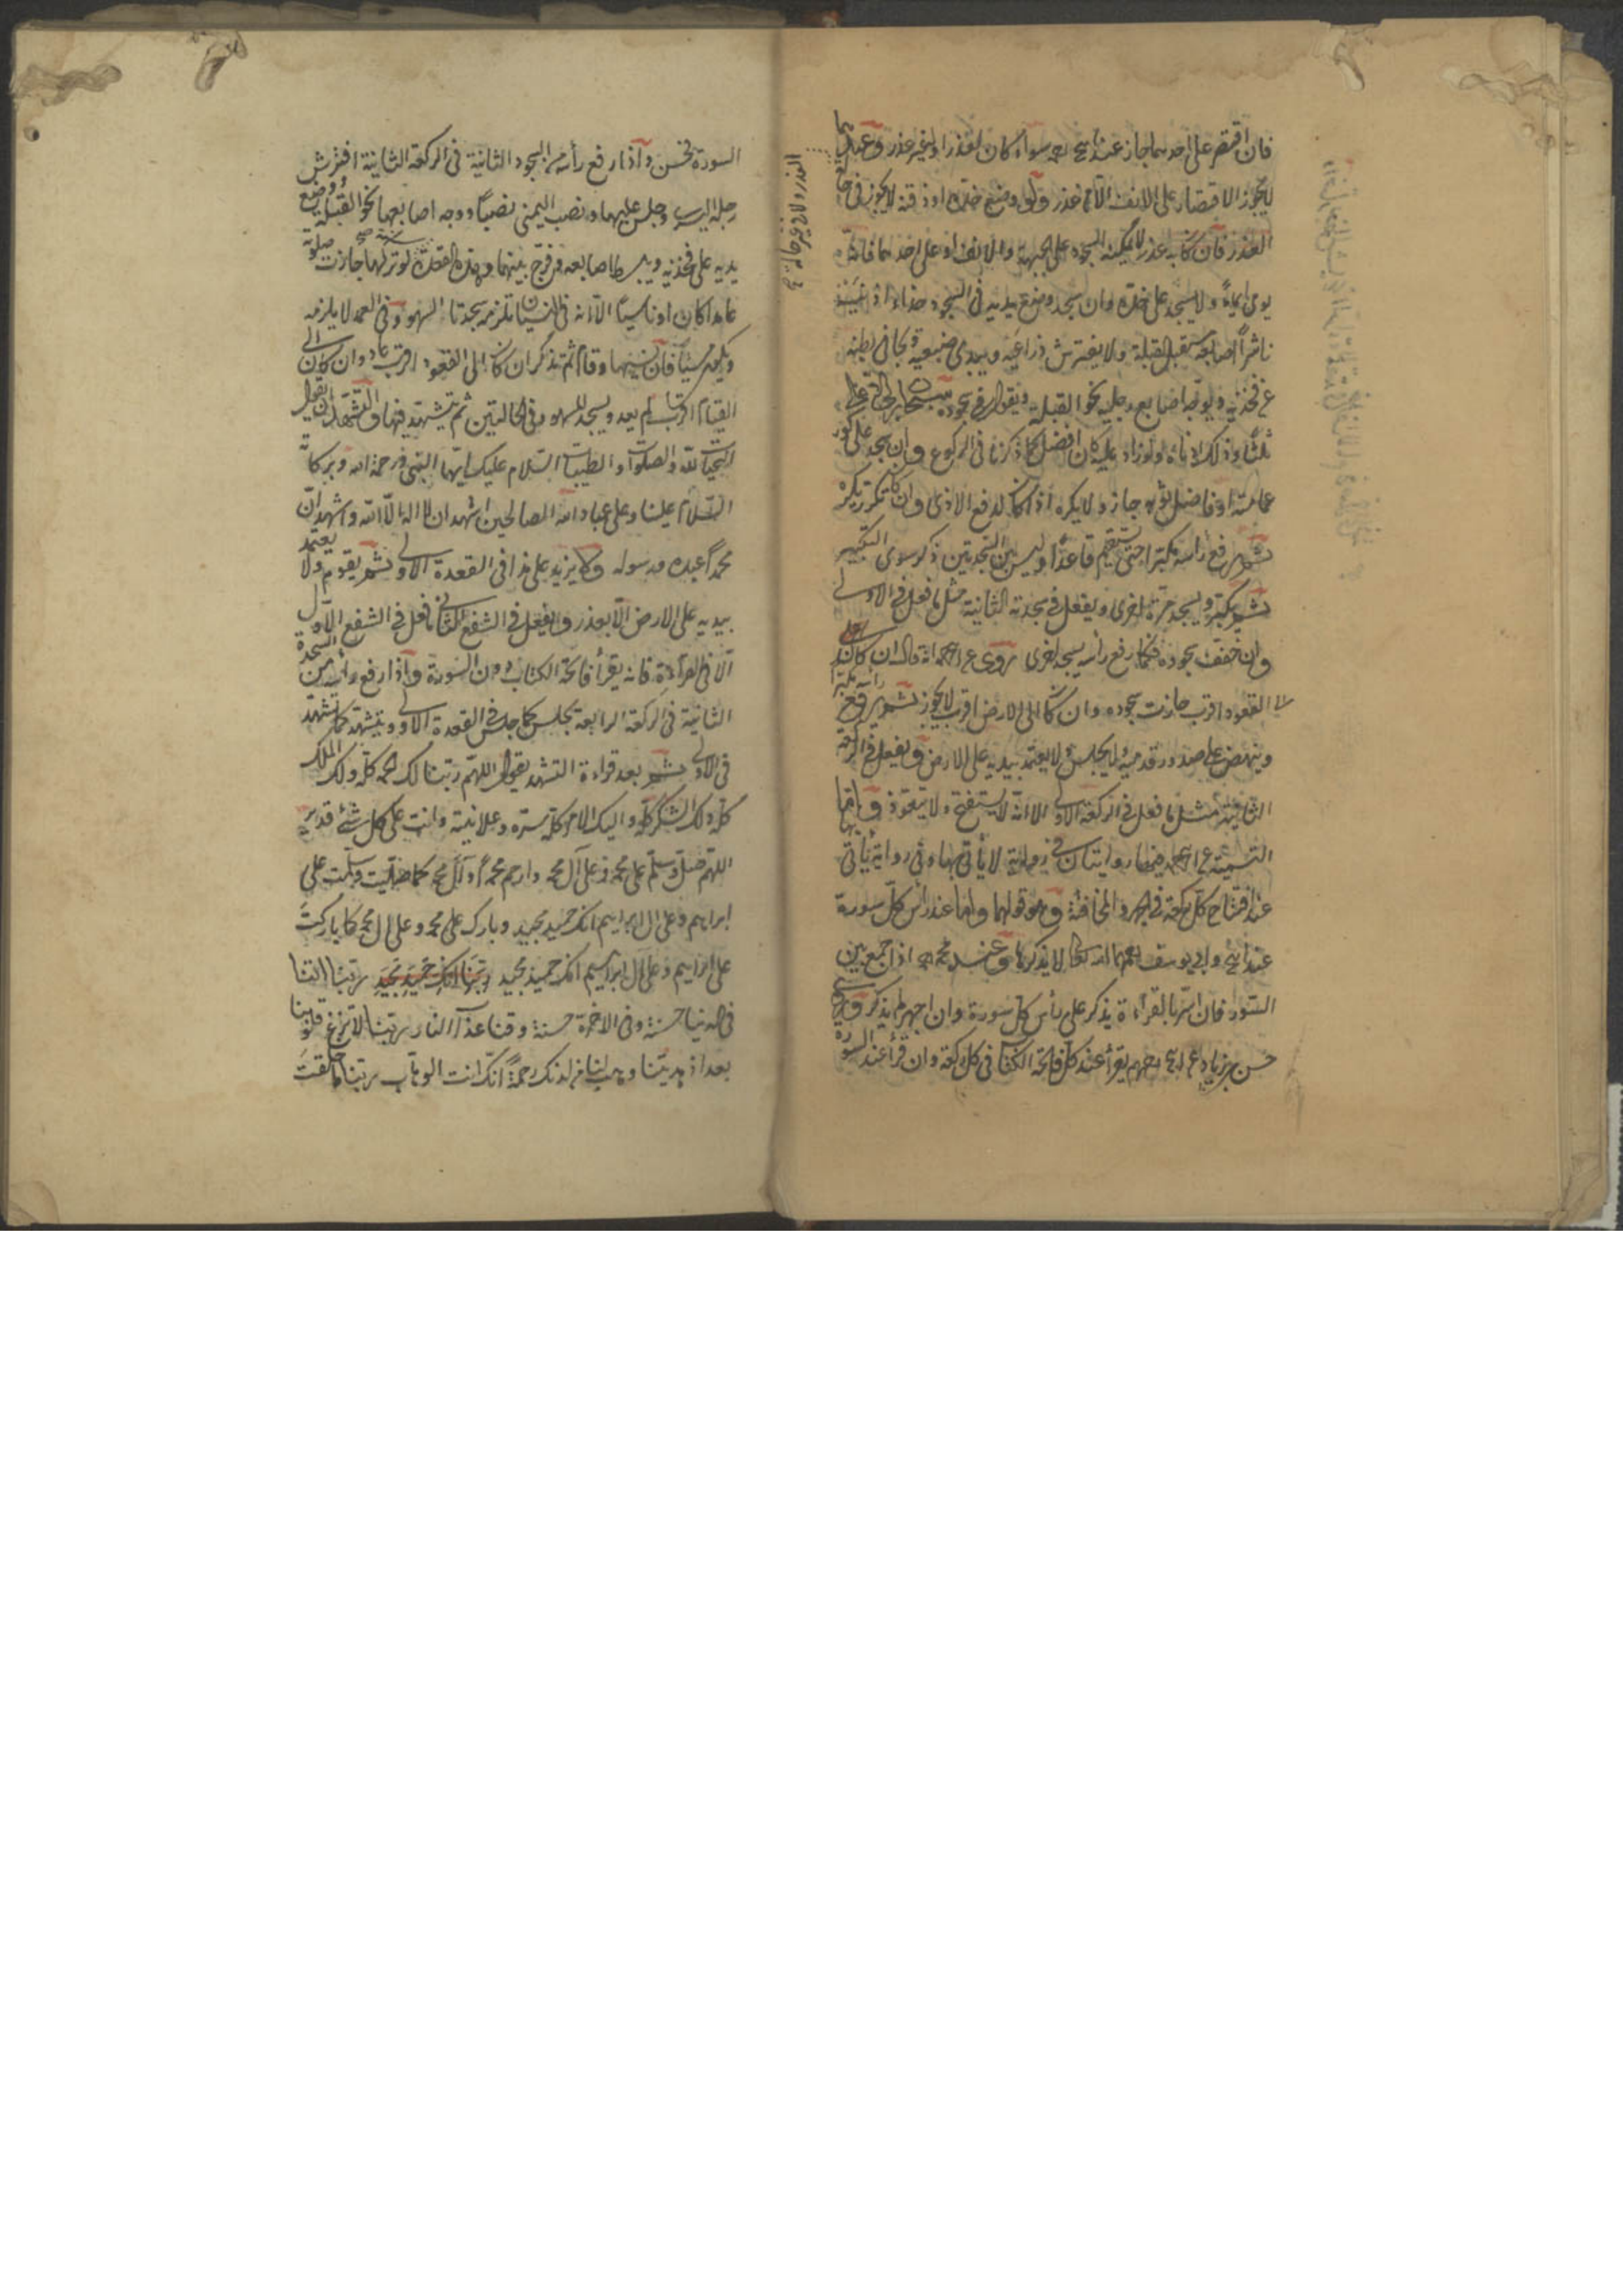 فان اقتصر على احدهما جاز عند ابي ح رحمه سواء كان لعذر او لغير عذر وعندهما
لا يجوز الاقتصار على الانف الا من عذر ولو وضع خده او ذقنه لا يجوز في حالة
العذر ولا في غير حالة
العذر فان كان به عذر لا يمكنه السجود على الجبهة والانف او على احدهما فانه
يومى ايماءً ولا يسجد على خده وان سجد وضع يديه في السجود حذاء اذنيه
ناشراً اصابعه مستقبل القبلة ولا يفترش ذراعيه ويبدى ضبعيه ويجافى بطنه
عن فخذيه ويوجه اصابع رجليه نحو القبلة ويقول في سجوده سبحان ربي الاعلى
ثلثاً وذلك ادناه ولو زاد عليه كان افضل كما ذكرنا في الركوع وان سجد على كور
عمامته او فاضل ثوبه جاز ولا يكره اذا كان لدفع الاذى وان كان تكبر يكره
ثم يرفع رأسه مكبرا حتى يستقيم قاعدًا وليس بين السجدتين ذكر سوى التكبير
ثم يكبر ويسجد مرة اخرى ويفعل في سجدته الثانية مثل ما فعل في الاولى
وان خفف سجوده فكما رفع رأسه يسجد اخرى روى عن ابي ح رحمه انه قال ان كان
الى القعود اقرب جازت سجوده وان كان الى الارض اقرب لا يجوز ثم يرفع رأسه مكبرا
وينهض على صدور قدميه ولا يجلس ولا يعتمد بيديه على الارض ويفعل في الركعة
الثانية مثل ما فعل في الركعة الاولى الا انه لا يستفتح ولا يتعوذ واما
التسمية عن ابي ح رحمه فيها روايتان في رواية لا يأتى بها وفى رواية يأتى بها
عند افتتاح كل ركعة في الجهر والمخافتة وهو قولهما واما عند رأس كل سورة
عند ابي ح وابي يوسف رحمهما الله تعالى لا يذكرها وعند محمد رحمه اذا جمع بين
السور فان اسر بالقرأءة يذكر على رأس كل سورة وان اجهر لم يذكر وروى
حسن بن زياد عن ابي ح رحمهم يقرأ عند كل فاتحة الكتاب في كل ركعة وان قرأ عند السورة
السورة تحسن واذا رفع رأسه من السجود الثانية في الركعة الثانية افترش
رجله اليسرى وجلس عليها ونصب اليمنى نصباً ووجه اصابعها نحو القبلة ووضع
يديه على فخذيه ويبسط اصابعه ويفرج بينهما وهذه القعدة سنة لو تركها جازت صلوته
عامدا كان او ناسياً الا انه في النسيان تلزمه سجدتا السهو وفى العمد لا يلزمه
ويكون مسيئاً فان نسيها وقام ثم تذكر ان كان الى القعود اقرب عاد وان كان الى
القيام اقرب لم يعد ويسجد للسهو وفى الحالتين ثم يتشهد فيها والتشهد ان يقول
التحيات لله والصلوات والطيبات السلام عليك ايها النبى ورحمة الله وبركاته
السلام علينا وعلى عباد الله الصالحين اشهد ان لا اله الا الله واشهد ان
محمداً عبده ورسوله ولا يزيد على هذا في القعدة الاولى ثم يقوم ولا يعتمد
بيديه على الارض الا بعذر ويفعل في الشفع الثاني ما فعل في الشفع الاول
الا في القرأءة فانه يقرأ فاتحة الكتاب دون السورة واذا رفع رأسه من السجدة
الثانية في الركعة الرابعة يجلس كما جلس في القعدة الاولى ويتشهد كما تشهد
في الاولى ثم بعد قراءة التشهد يقول اللهم ربنا لك الحمد كله ولك الملك
كله ولك الشكر كله واليك الامر كله سره وعلانيته وانت على كل شئ قدير
اللهم صل وسلم على محمد وعلى آل محمد وارحم محمداً وآل محمد كما صليت وسلمت على
ابراهيم وعلى ال ابراهيم انك حميد مجيد وبارك على محمد وعلى ال محمد كما باركت
على ابراهيم وعلى ال ابراهيم انك حميد مجيد ربنا انك حميد مجيد ربنا اتنا
في الدنيا حسنة وفى الاخرة حسنة وقنا عذاب النار ربنا لا تزغ قلوبنا
بعد اذ هديتنا وهب لنا من لدنك رحمةً انك انت الوهاب ربنا ما خلقت